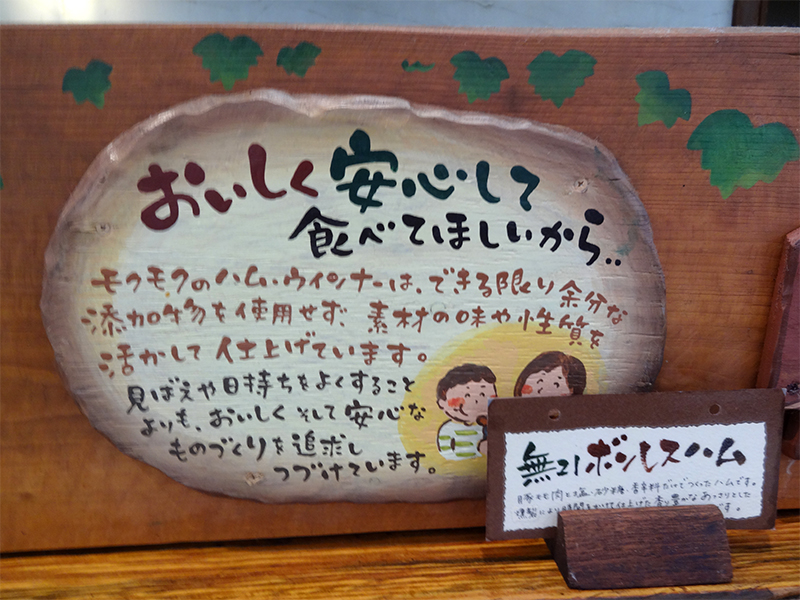 おいしく安心して
食べてほしいから..
モクモクのハム・ウインナーは、できる限り余分な
添加物を使用せず、素材の味や性質を
活かして仕上げています。
見ばえや日持ちをよくすること
よりも、おいしくそして安心な
ものづくりを追求し
つづけています。
無添ボンレスハム
豚もも肉と塩・砂糖・香辛料だけでつくったハムです。